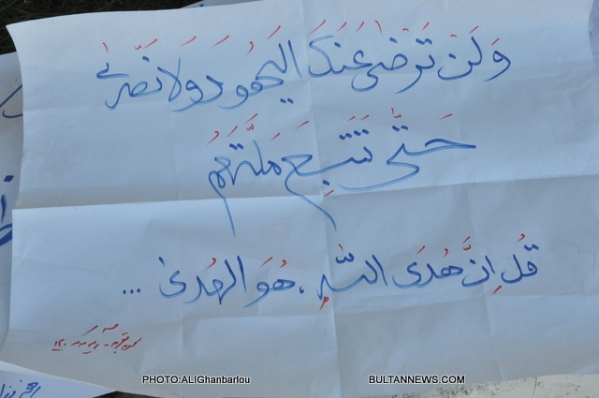 وَلَنْ تَرْضىٰ عَنْكَ الْيَهُودُ وَلَا نَصَرىٰ
حَتّىٰ تَتَّبِعَ مِلَّتَهُمْ
قُلْ اِنَّ هُدَى اللّهِ، هُوَ الهُدىٰ ...
PHOTO:ALIGhanbarlou
BULTANNEWS.COM